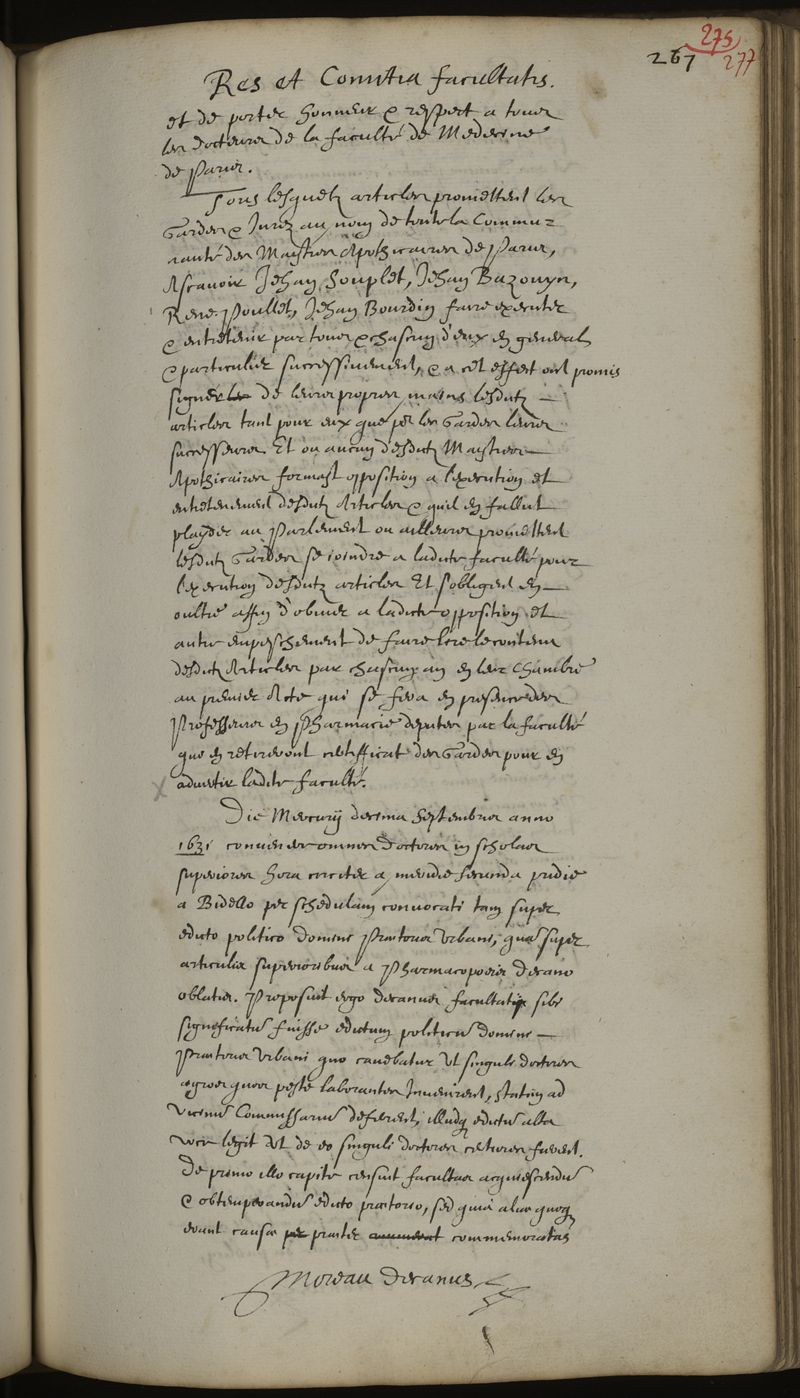 275
267 277
Res et Comitia facultatis.
et de porter honneur & respect a tous
les docteurs de la faculté de Medecine
de Paris.
Tous lesquelz articles promettent les
Gardes & Jurez au nom de toute la Commu=
nauté des Maistres Apothicaires de Paris,
Ascavoir Jehan Souplet, Jehan Bazouyn,
René Poullet, Jehan Bourdin faire executer
& entretenir par tous & chascun d'eux en general
& particulier successivement, & a cet effect ont promis
signer les de leurs propres mains lesditz
articles tant pour eux que pour les Gardes leurs
successeurs. Et ou aucun desditz Maistres
Apothicaires formast opposition a l'execution et
entretenement desditz Articles & quil en fallut
playder au Parlement ou ailleurs promettent
lesditz Gardes se joindre a ladite faculté pour
l'execution desditz articles Et s'obligent en
oultre affin d'obvier a ladicte opposition et
autre empeschement de faire lire le contenu
desditz Articles par chascun an en leur Chambre
au premier Acte qui se fera en presence des
Professeurs en Pharmacie deputez par la faculté
que en retireront certifficat des Gardes pour en
advertir ladite faculté.
Die Mercurij decima Septembris anno
1631 convenere omnes Doctores in scholas
superiores hora circiter a meridie secunda pridie
a Bidello per schedulam convocati tam super
edicto politico domini Praetoris Urbani, quam super
articulis superioribus a Pharmacopoeis Decano
oblatis. Proposuit ergo decanus facultatis sibi
significatu fuisse edictum politicu domini
Praetoris Urbani quo cavebatur Ut singuli doctores
aegros quos peste laborantes Invenirent, statim ad
Vicinu Commissariu deferrent, illudq edictu alta
voce legit Ut de eo singuli doctores certiores fierent.
De primo illo capite censuit facultas acquiescendu
& obtemperandu edicto praetorio, sed quia aliae quoq
erant causae per praeter commemoratas
Moreau Decanus